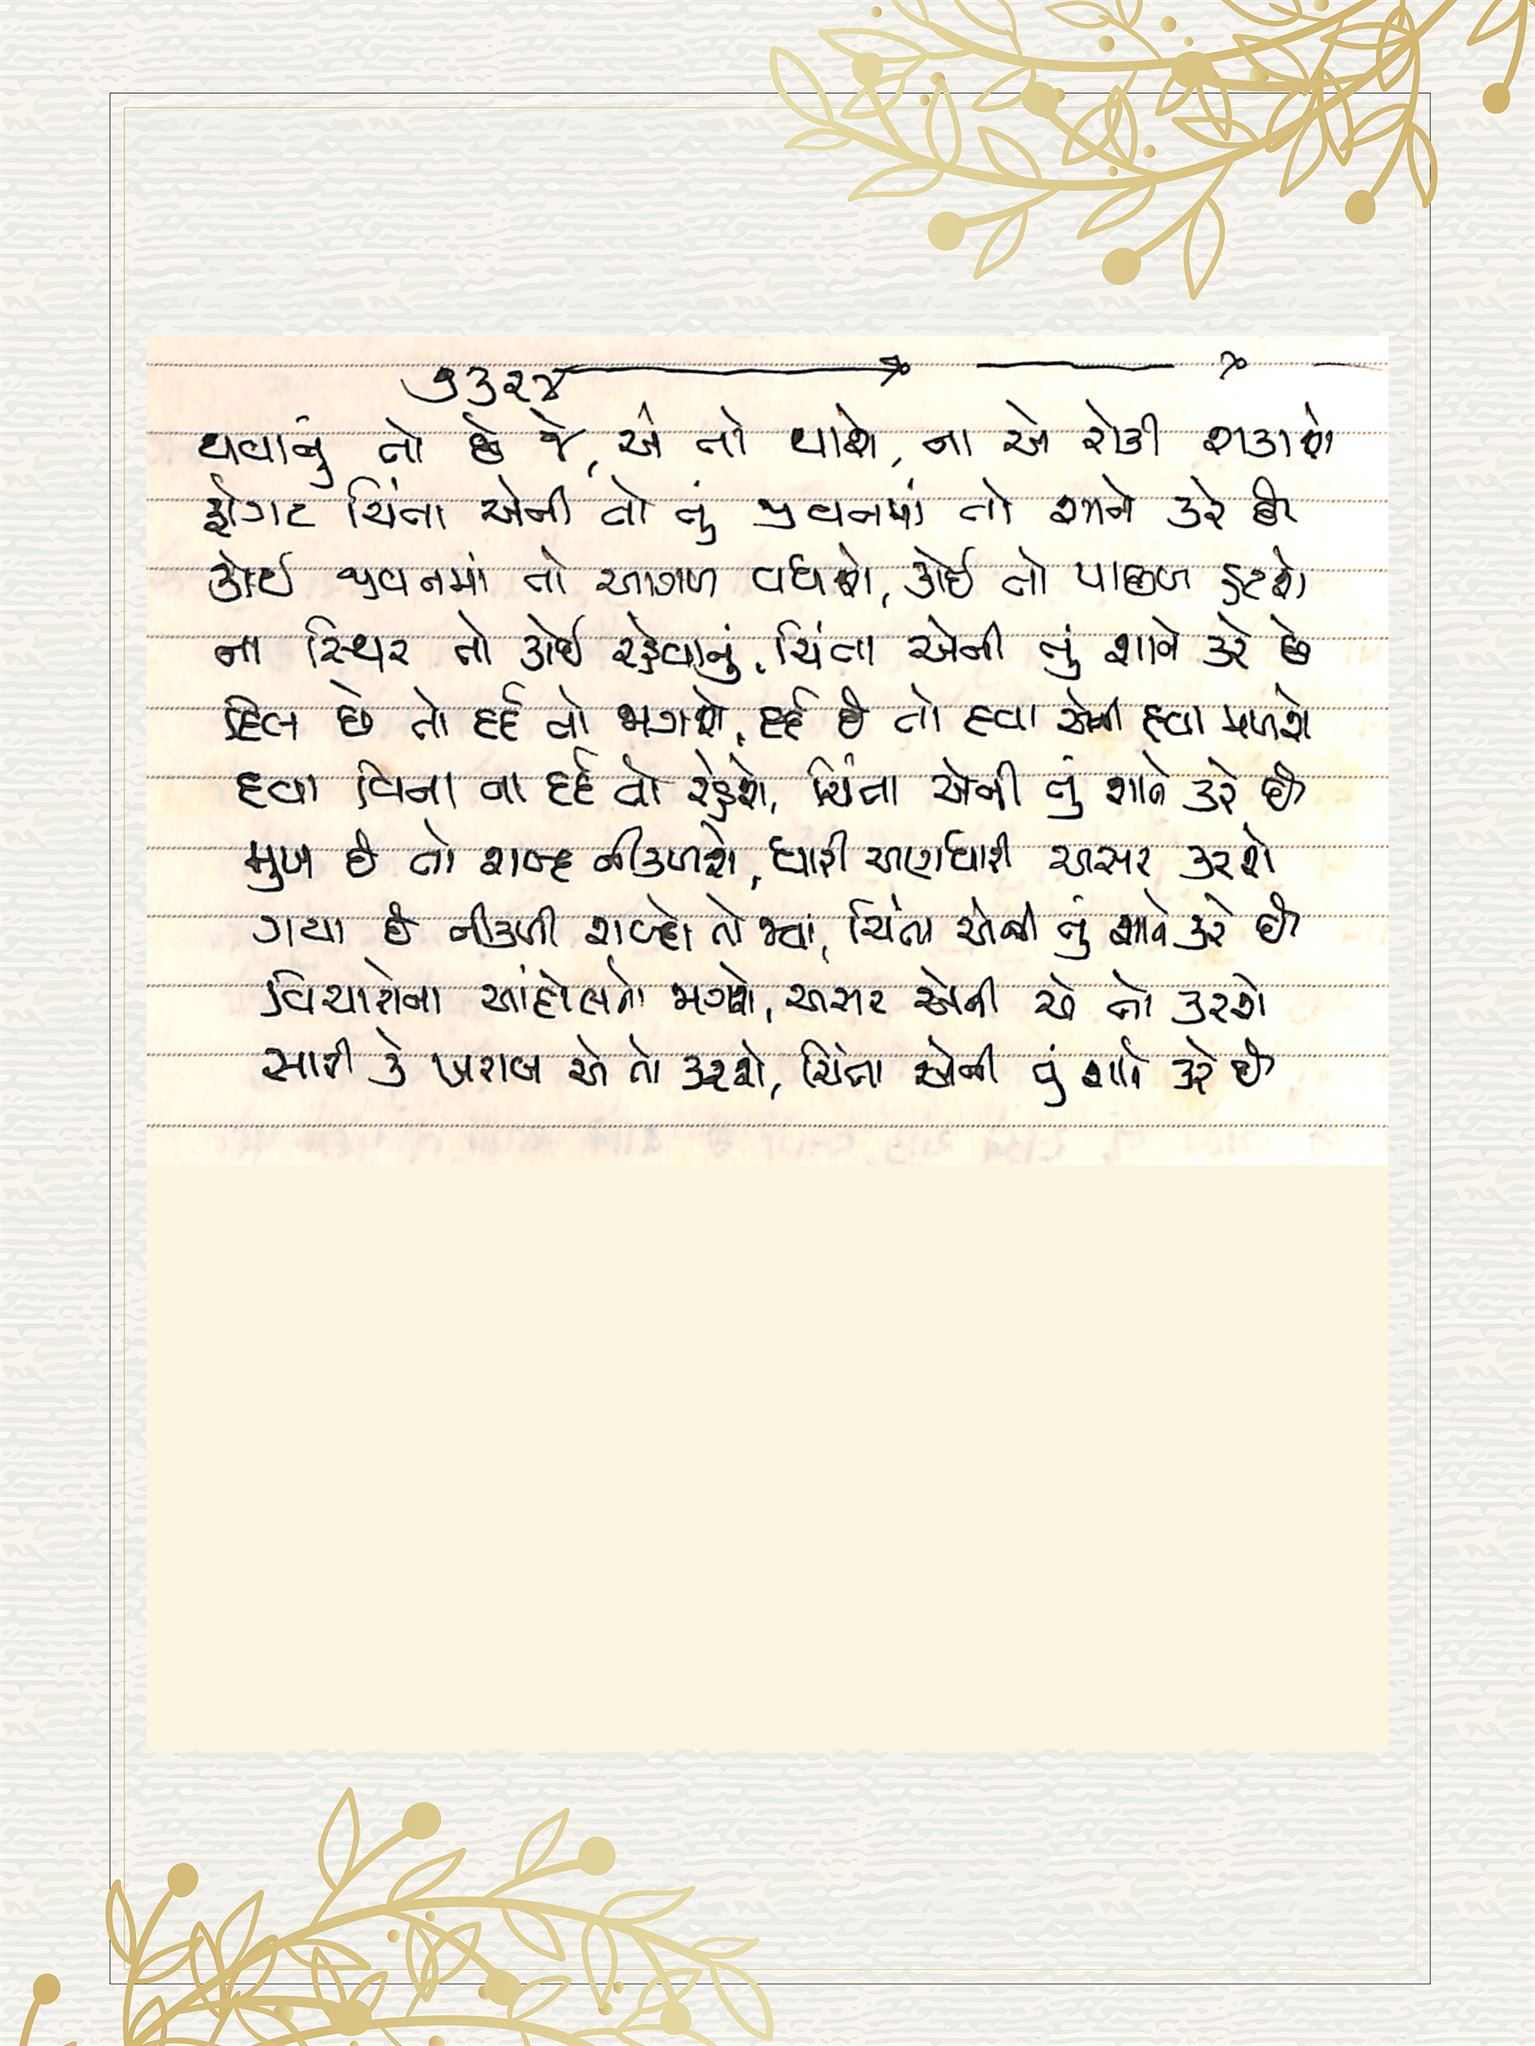 ૭૩૨૪
થવાનું તો છે જે, એ તો થાશે, ના એ રોકી શકાશે
ફોગટ ચિંતા એની તો તું જીવનમાં તો શાને કરે છે
કોઈ જીવનમાં તો આગળ વધશે, કોઈ તો પાછળ હટશે
ના સ્થિર તો કોઈ રહેવાનું, ચિંતા એની તું શાને કરે છે
દિલ છે તો દર્દ તો જાગશે, દર્દ છે તો દવા એની દવા મળશે
દવા વિના ના દર્દ તો રહેશે, ચિંતા એની તું શાને કરે છે
મુખ છે તો શબ્દ નીકળશે, ધારી અણધારી અસર કરશે
ગયા છે નીકળી શબ્દો તો જ્યાં, ચિંતા એની તું શાને કરે છે
વિચારોના આંદોલનો જાગશે, અસર એની એ તો કરશે
સારી કે ખરાબ એ તો કરશે, ચિંતા એની તું શાને કરે છે